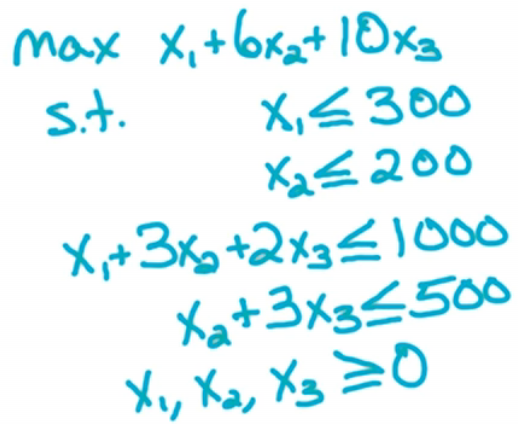 max x₁+6x₂+10x₃
s.t. x₁≤300
x₂≤200
x₁+3x₂+2x₃≤1000
x₂+3x₃≤500
x₁, x₂, x₃≥0